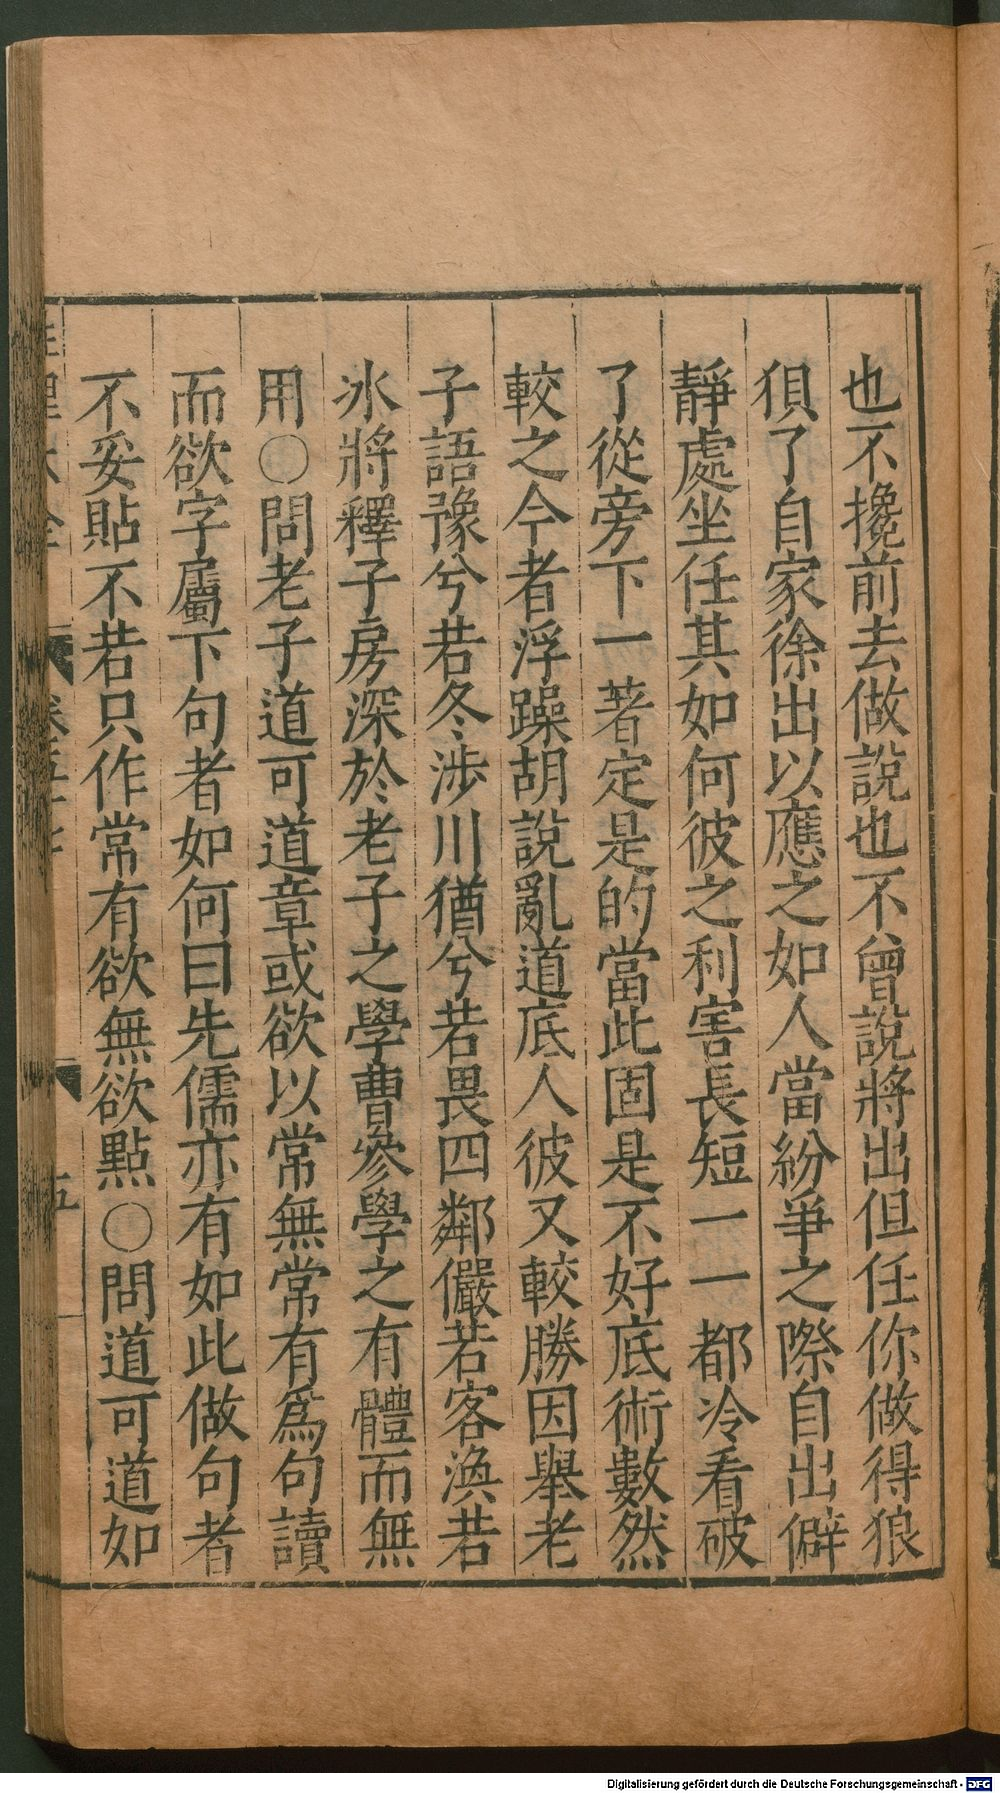 也不攙前去做說也不曾說將出但任你做得狼
狽了自家徐出以應之如人當紛爭之際自出僻
靜處坐任其如何彼之利害長短一一都冷看破
了從旁下一著定是的當此固是不好底術數然
較之今者浮躁胡說亂道底人彼又較勝因舉老
子語豫兮若冬涉川猶兮若畏四鄰儼若客渙若
冰將釋子房深於老子之學曹參學之有體而無
用○問老子道可道章或欲以常無常有為句讀
而欲字屬下句者如何曰先儒亦有如此做句者
不妥貼不若只作常有欲無欲點○問道可道如
五
Digitalisierung gefördert durch die Deutsche Forschungsgemeinschaft - DFG